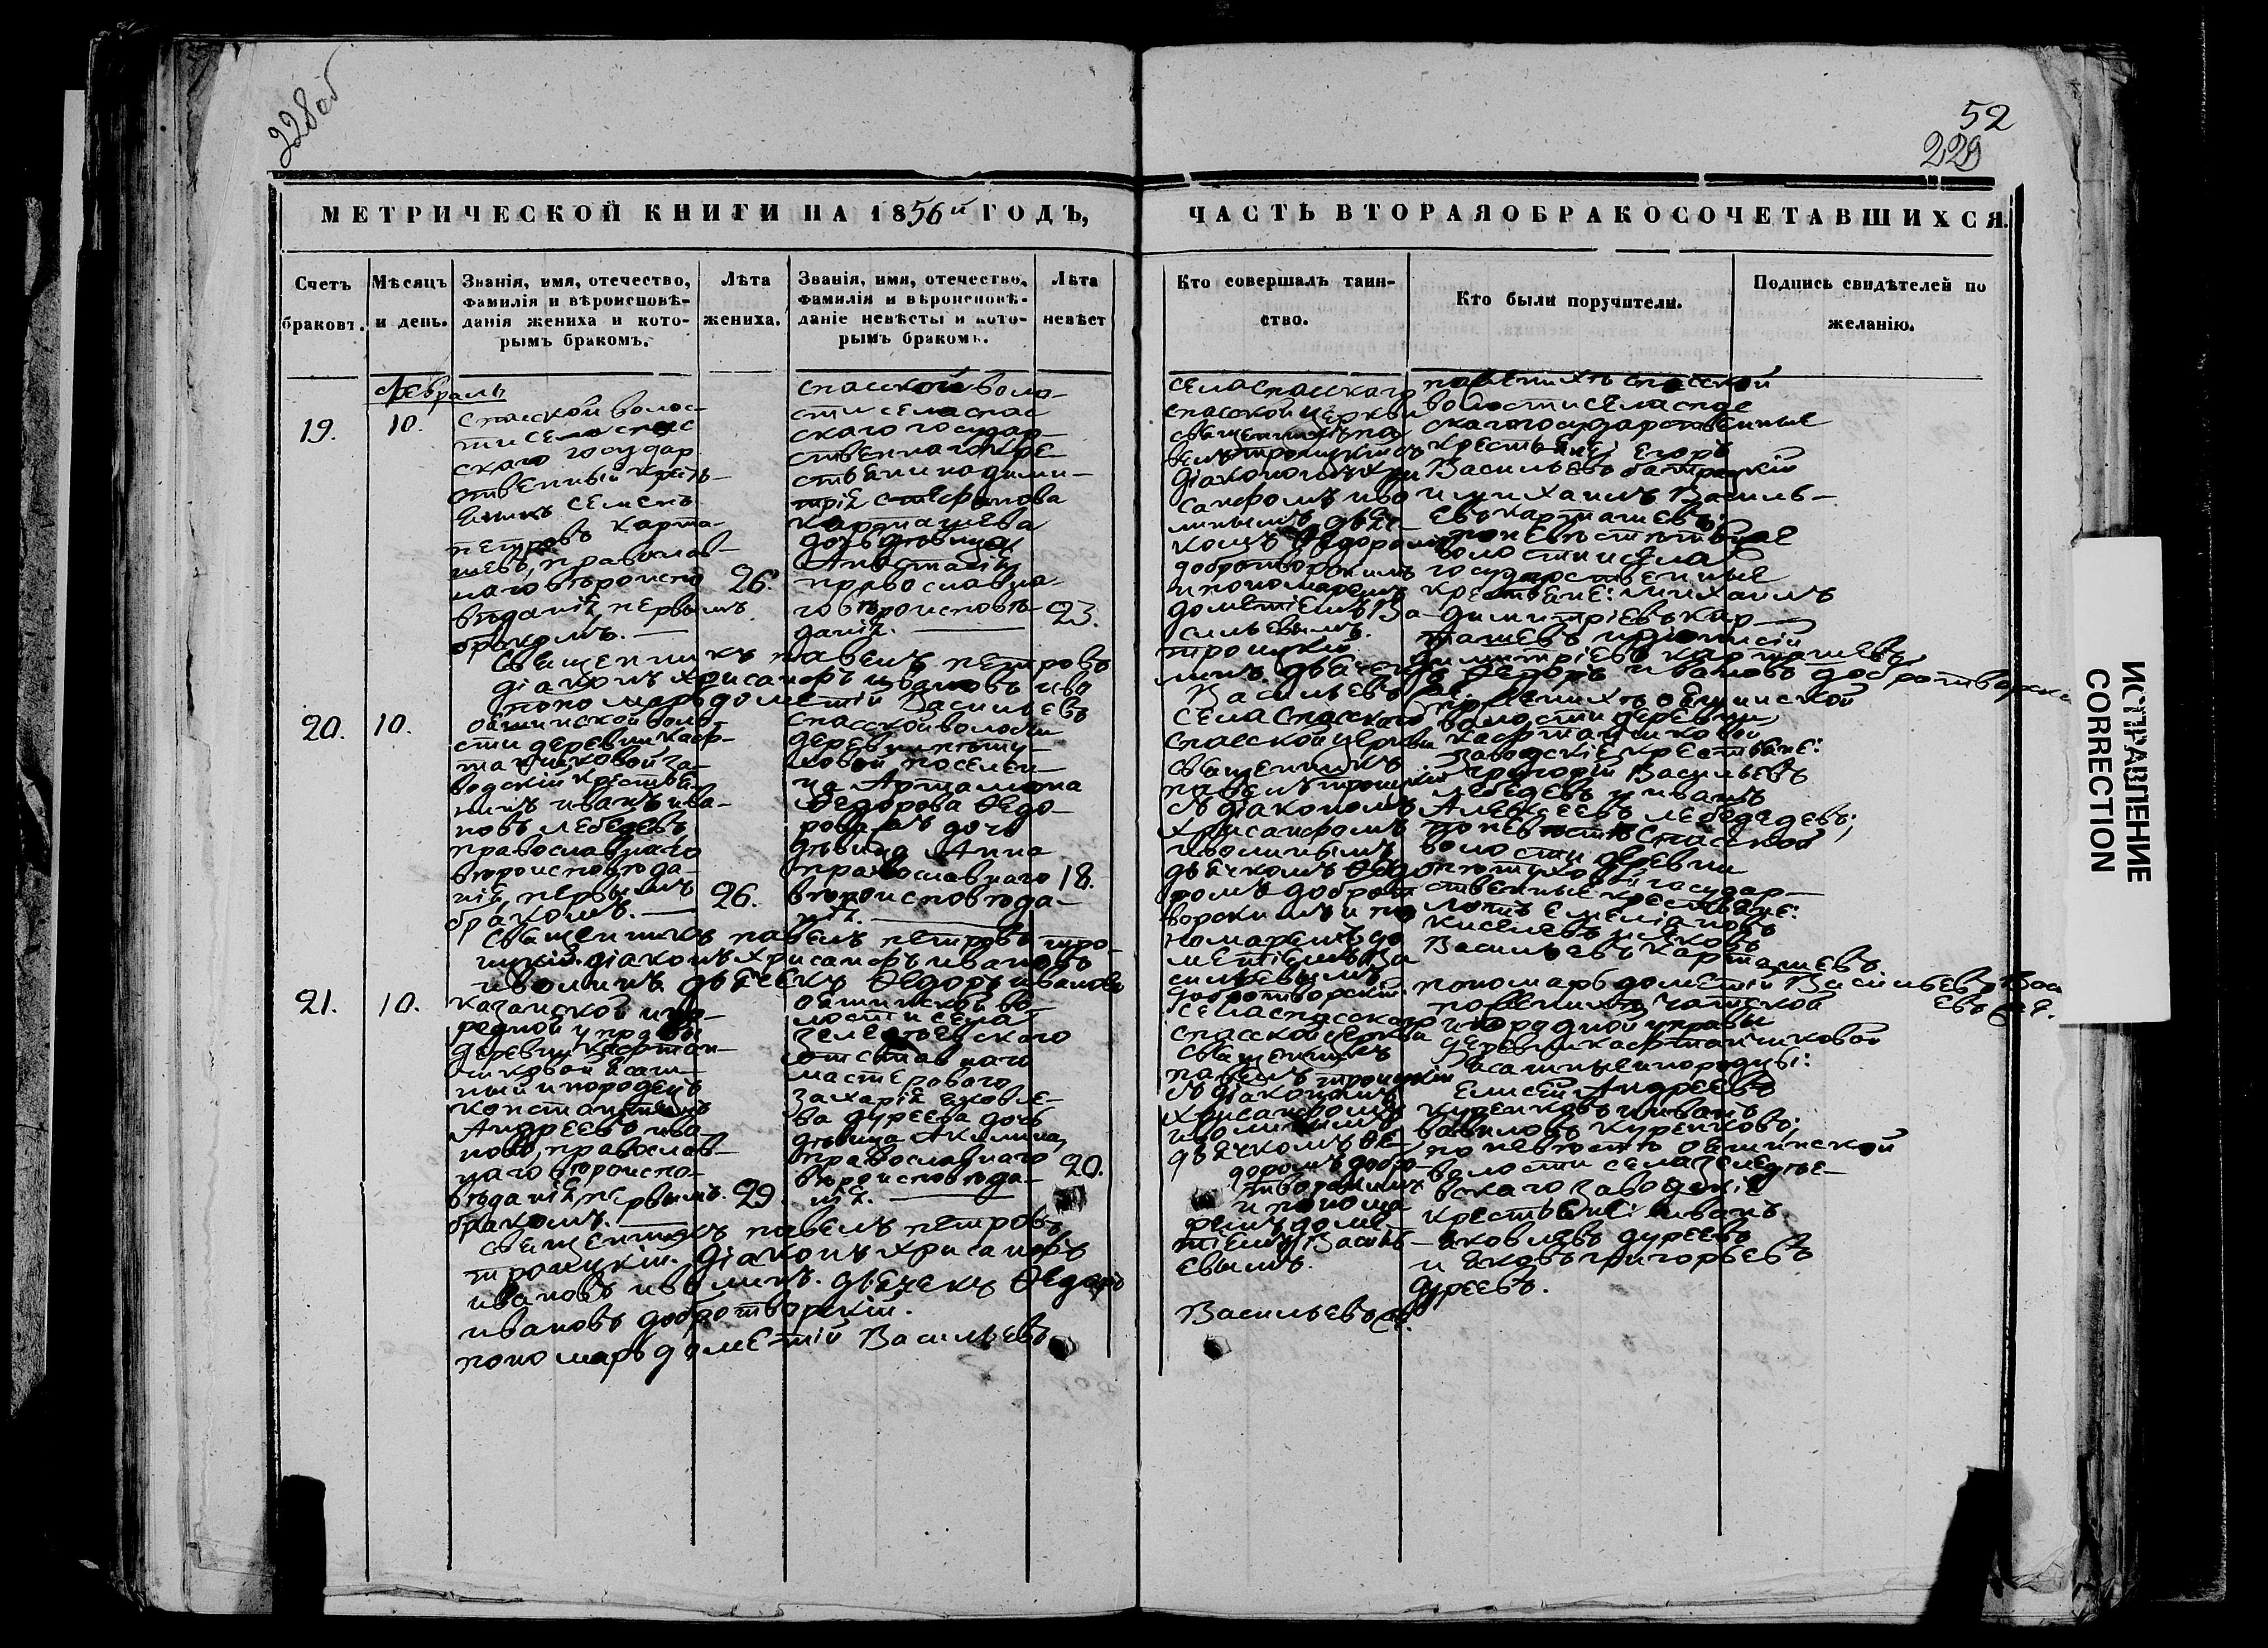 228об
52
229
МЕТРИЧЕСКОЙ КНИГИ НА 1856й ГОДЪ,
ЧАСТЬ ВТОРАЯ О БРАКОСОЧЕТАВШИХСЯ.
Счетъ браковъ.
Мѣсяцъ и день.
Званія, имя, отечество,
фамилія и вѣроисповѣ-
данія жениха и кото-
рымъ бракомъ.
Лѣта
жениха.
Званія, имя, отечество,
фамилія и вѣроисповѣ-
даніе невѣсты и кото-
рымъ бракомъ.
Лѣта
невѣст
Кто совершалъ таин-
ство.
Кто были поручители.
Подпись свидѣтелей по
желанію.
Февраль
19.
10.
Спасской волос-
ти села спас
скаго государ
ственный кресть-
янинъ семенъ
петровъ карта-
шевъ, православ-
наго вѣроиспо
вѣданія, первымъ
бракомъ.
26.
спасской воло-
сти села спас
скаго государ-
ственнаго кре-
стьянина дими-
трія стефанова
карташева
дочь дѣвица
Анастасія
православна-
го вѣроисповѣ-
данія.
23.
села спасскаго
спасской церкви
священникъ па
велъ троицкій съ
діакономъ хри
санфомъ иво
линымъ, дьяч-
комъ Ѳедоромъ
добротворскимъ
и пономаремъ
дометіемъ Ва-
сильевымъ.
по женихѣ спасской
волости села спас
скаго государственные
крестьяне: Егоръ
Васильевъ
и михаилъ Василь-
евъ карташевъ;
по невѣстѣ
волости села
государственные
крестьяне: михаилъ
димитріевъ кар-
ташевъ и діонисій
димитріевъ карташевъ.
Священникъ павелъ петровъ
троицкій.
діаконъ хрисанфъ ивановъ иво
линъ. дьячекъ Ѳедоръ ивановъ добротворскі
пономарь дометій Васильевъ
Васильевъ
20.
10.
ояшинской воло-
сти деревни кафт-
танчиковой за-
водскій крестья-
нинъ иванъ ива-
новъ лебедевъ
православнаго
вѣроисповѣда-
нія, первымъ
бракомъ.
26.
спасской волости
деревни пѣту-
ховой поселен-
ца Артамона
Ѳедорова Ѳедо-
рова дочь
дѣвица Анна
православнаго
вѣроисповѣда-
нія.
18.
села спасскаго
спасской церкви
священникъ
павелъ троицкій
съ діакономъ
хрисанфомъ
иволинымъ
дьячкомъ Ѳедо
ромъ доброт
ворскимъ и по
номаремъ до
метіемъ Ва
сильевымъ.
по женихѣ ояшинской
волости деревни
кафтанчиковой
заводскіе крестьяне:
григорій Васильевъ
лебедевъ и иванъ
Алексеевъ лебедевъ;
по невѣстѣ спасской
волости деревни
пѣтуховой государ-
ственные крестьяне:
емеліановъ
киселевъ и яковъ
Васильевъ карташевъ.
Священникъ павелъ петровъ трои-
цкій. діаконъ хрисанфъ ивановъ
иволинъ. дьячекъ Ѳедоръ ивановъ
добротворскій. пономарь дометій Васильевъ Вас
евъ
21.
10.
казанской ино-
родной управы
деревни кафтан-
чиковой ясаш-
ный инородецъ
константинъ
Андреевъ ива
новъ, православ-
наго вѣроиспо-
вѣданія, первымъ
бракомъ.
29.
ояшинской во-
лости села
зеледѣевскаго
отставнаго
мастероваго
захарія яковле-
ва дуреева дочь
дѣвица Акилина,
православнаго
вѣроисповѣда-
нія.
20.
села спасскаго
спасской церкви
священникъ
павелъ троицкій
съ діакономъ
хрисанфомъ
иволинымъ
дьячкомъ Ѳе-
доромъ добро-
творскимъ
и понома
ремъ доме-
тіемъ Василь-
евымъ.
по женихѣ чатской
инородной управы
деревни кафтанчиковой
ясашные инородцы:
Елисей Андреевъ
куренковъ и иванъ
вавиловъ куренковъ;
по невѣстѣ ояшинской
волости села зеледѣе-
вскаго заводскіе
крестьяне: иванъ
яковлевъ дуреевъ
и яковъ григорьевъ
дуреевъ.
Священникъ павелъ петровъ
троицкій. діаконъ хрисанфъ
ивановъ иволинъ. дьячекъ Ѳедоръ
ивановъ добротворскій.
пономарь дометій Васильевъ
Васильевъ
ИСПРАВЛЕНИЕ
CORRECTION